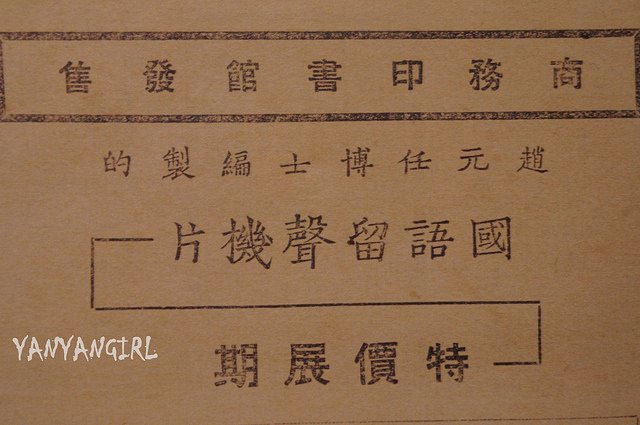 商務印書館發售
趙元任博士編製的
國語留聲機片
特價展期
YANYANGIRL